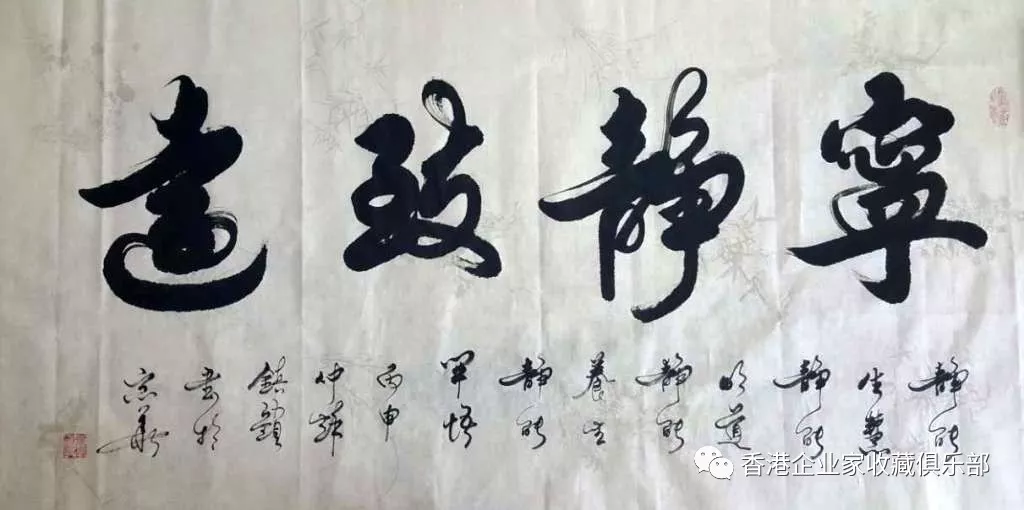 寧靜致遠
静能
生慧
静能
明道
静能
養生
静能
開悟
丙申
仲
鎮
書於
京華
香港企业家收藏俱乐部